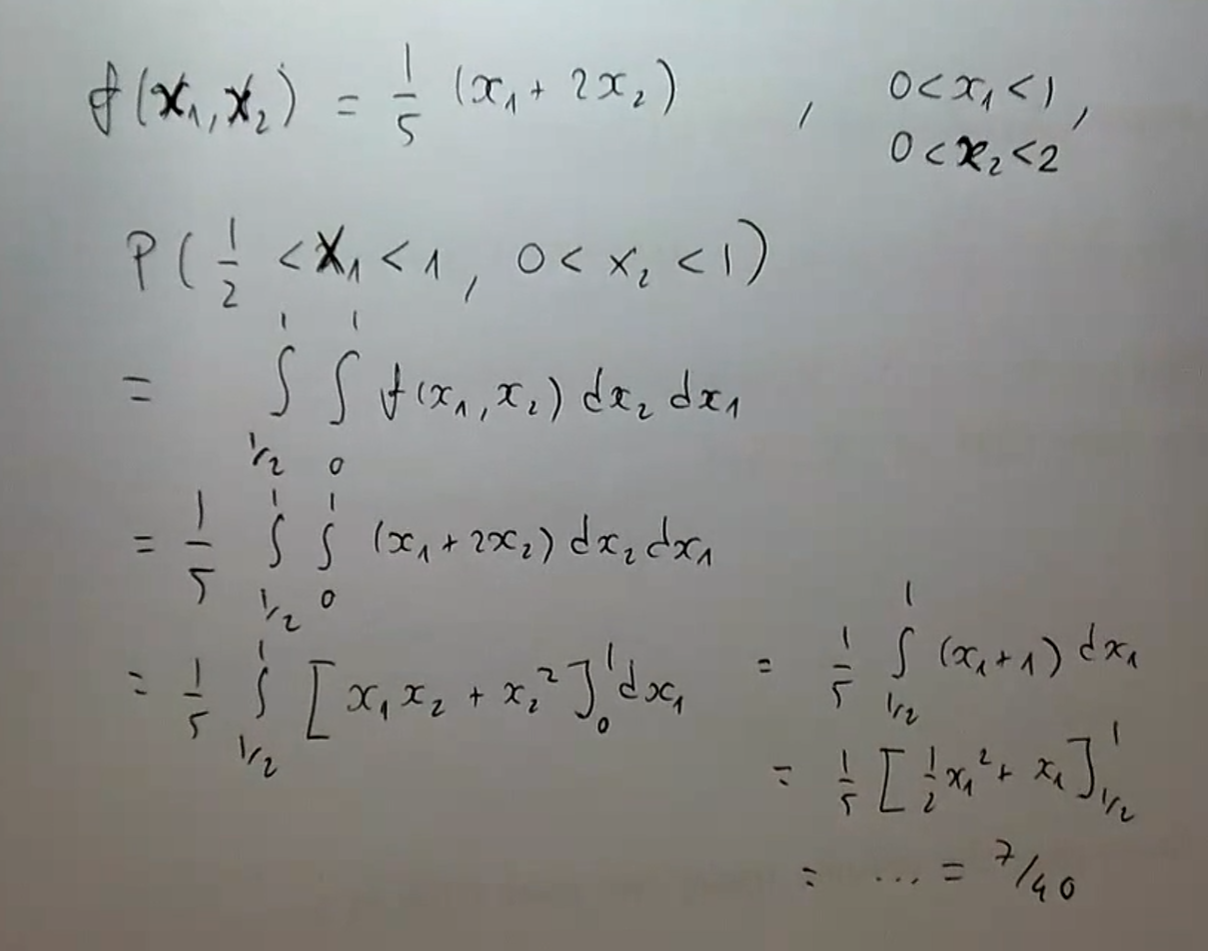 f(x₁,x₂) = 1/5 (x₁ + 2x₂) , 0<x₁<1,
0<x₂<2
P(1/2 <X₁<1, 0<x₂<1)
= ∫_{1/2}^{1} ∫_{0}^{1} f(x₁,x₂) dx₂ dx₁
= 1/5 ∫_{1/2}^{1} ∫_{0}^{1} (x₁+2x₂) dx₂ dx₁
= 1/5 ∫_{1/2}^{1} [x₁x₂ + x₂²]_{0}^{1} dx₁
= 1/5 ∫_{1/2}^{1} (x₁+1) dx₁
= 1/5 [1/2 x₁² + x₁]_{1/2}^{1}
= ... = 7/40